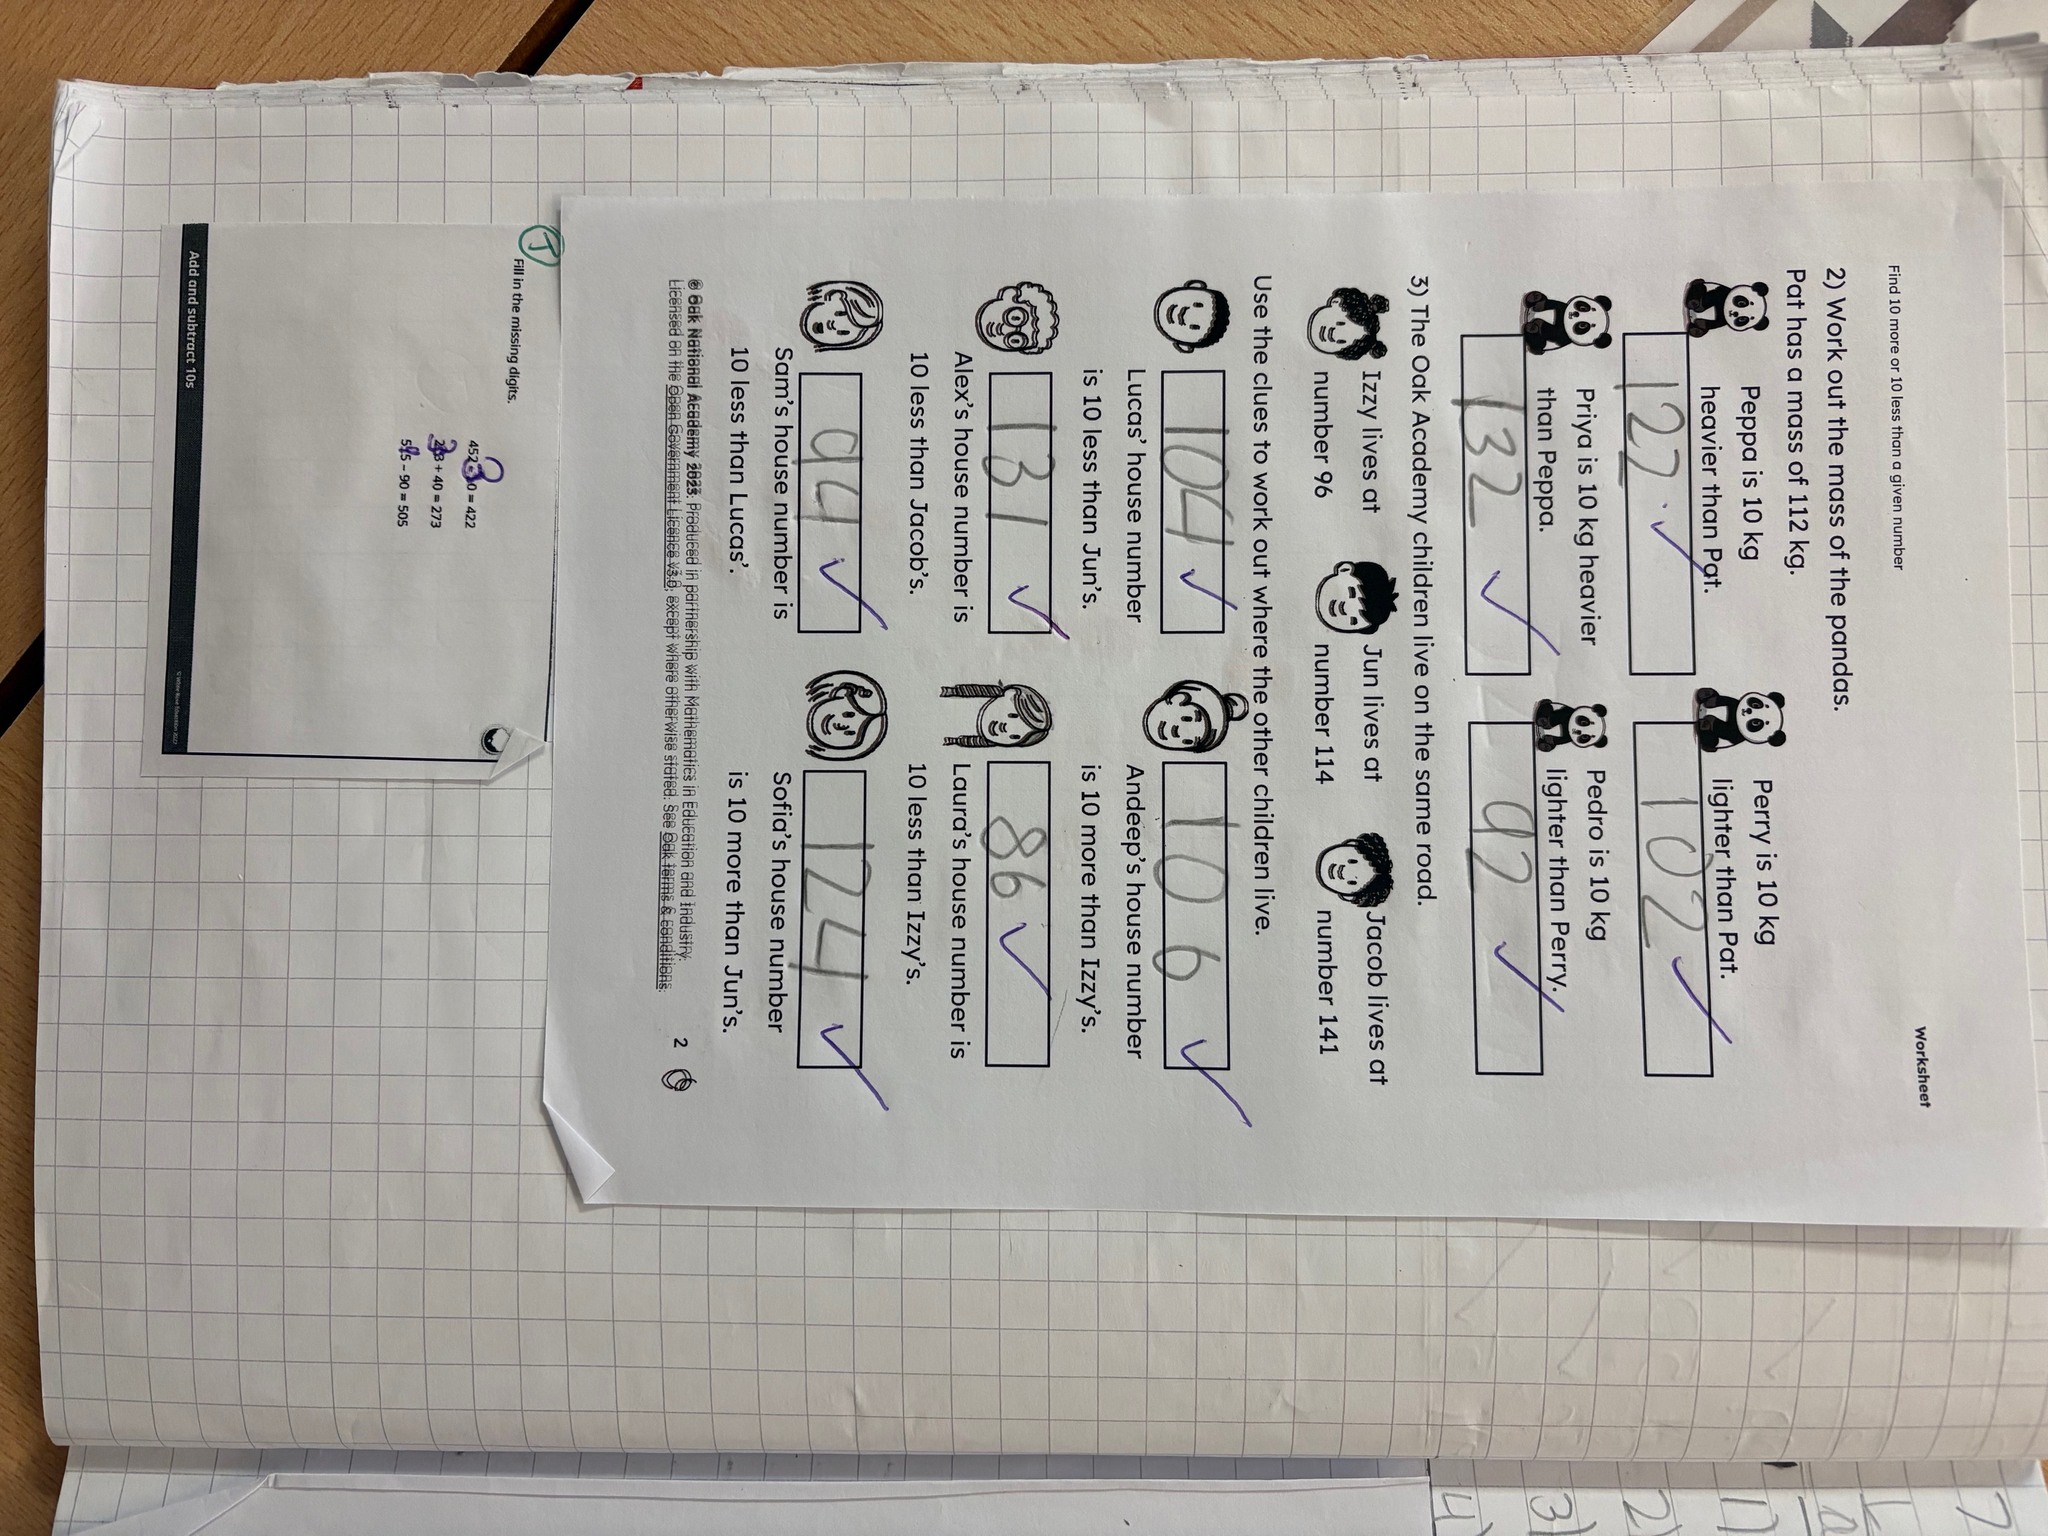 Worksheet
Find 10 more or 10 less than a given number
2) Work out the mass of the pandas.
Pat has a mass of 112 kg.
Peppa is 10 kg
heavier than Pat.
122
Perry is 10 kg
lighter than Pat.
102
Priya is 10 kg heavier
than Peppa.
132
Pedro is 10 kg
lighter than Perry.
92
3) The Oak Academy children live on the same road.
Izzy lives at
number 96
Jun lives at
number 114
Jacob lives at
number 141
Use the clues to work out where the other children live.
104
Lucas' house number
is 10 less than Jun's.
106
Andeep's house number
is 10 more than Izzy's.
131
Alex's house number is
10 less than Jacob's.
86
Laura's house number is
10 less than Izzy's.
94
Sam's house number is
10 less than Lucas'.
124
Sofia's house number
is 10 more than Jun's.
© Oak National Academy 2023. Produced in partnership with Mathematics in Education and Industry.
Licensed on the Open Government Licence v3.0, except where otherwise stated. See Oak terms & conditions.
2
T
Fill in the missing digits.
452 - 30 = 422
233 + 40 = 273
595 – 90 = 505
Add and subtract 10s
7
1)
2)
3)
4)